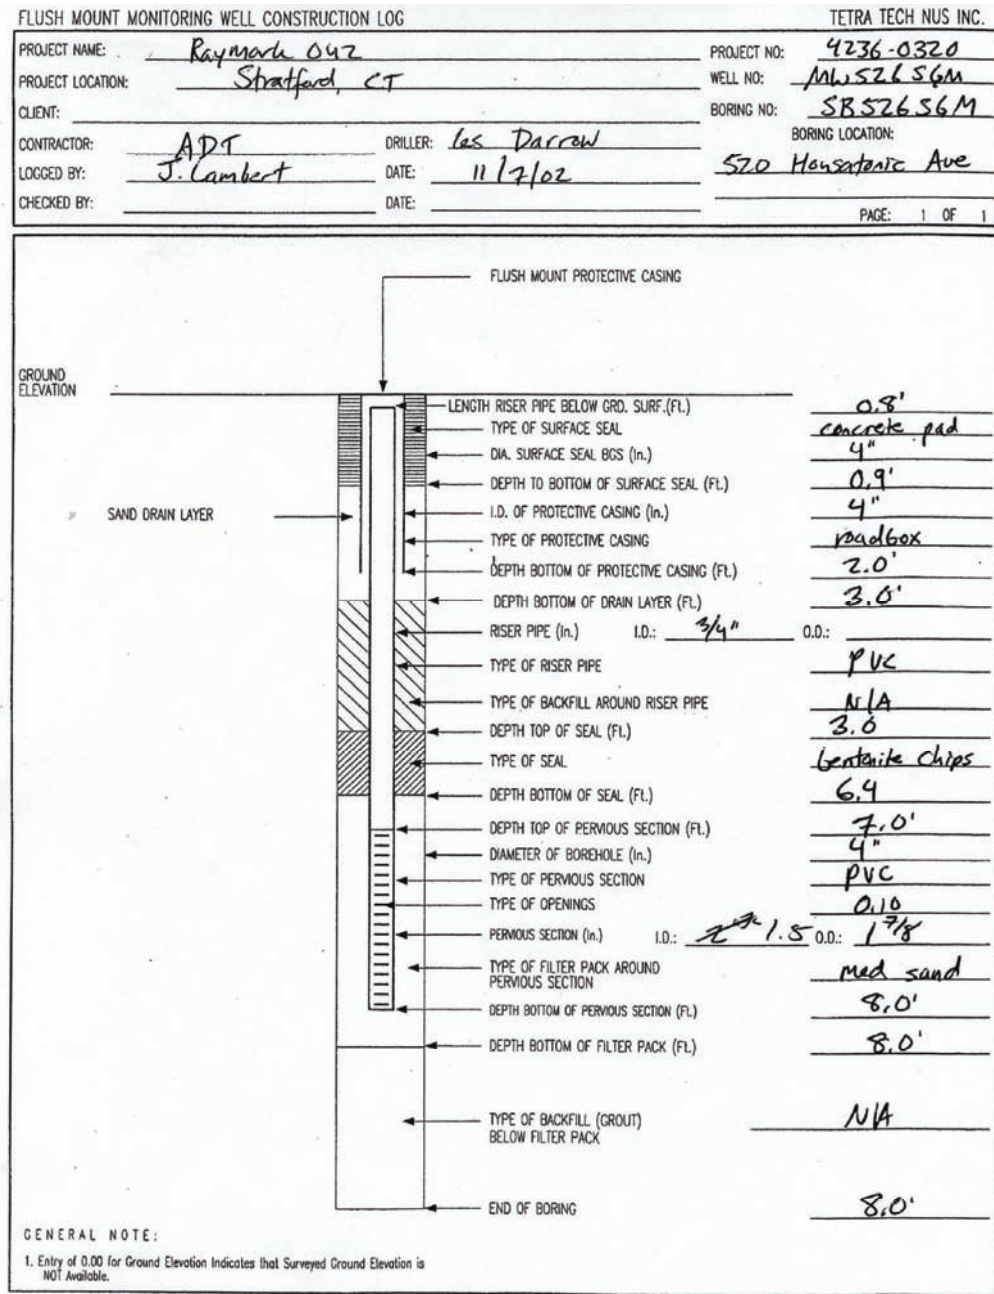 FLUSH MOUNT MONITORING WELL CONSTRUCTION LOG TETRA TECH NUS INC.
PROJECT NAME: Raymark OU2 PROJECT NO: 4236-0320
PROJECT LOCATION: Stratford, CT WELL NO: MW526SGM
CLIENT: BORING NO: SB526SGM
CONTRACTOR: ADT DRILLER: Les Darrow BORING LOCATION:
LOGGED BY: J. Lambert DATE: 11/7/02 520 Housatonic Ave
CHECKED BY: DATE:
PAGE: 1 OF 1
FLUSH MOUNT PROTECTIVE CASING
GROUND
ELEVATION
LENGTH RISER PIPE BELOW GRD. SURF.(Ft.) 0.8'
TYPE OF SURFACE SEAL concrete pad
DIA. SURFACE SEAL BGS (In.) 4"
DEPTH TO BOTTOM OF SURFACE SEAL (Ft.) 0.9'
SAND DRAIN LAYER I.D. OF PROTECTIVE CASING (In.) 4"
TYPE OF PROTECTIVE CASING roadbox
DEPTH BOTTOM OF PROTECTIVE CASING (Ft.) 2.0'
DEPTH BOTTOM OF DRAIN LAYER (Ft.) 3.0'
RISER PIPE (In.) I.D.: 3/4" O.D.:
TYPE OF RISER PIPE PVC
TYPE OF BACKFILL AROUND RISER PIPE N/A
DEPTH TOP OF SEAL (Ft.) 3.0
TYPE OF SEAL bentonite chips
DEPTH BOTTOM OF SEAL (Ft.) 6.4
DEPTH TOP OF PERVIOUS SECTION (Ft.) 7.0'
DIAMETER OF BOREHOLE (In.) 4"
TYPE OF PERVIOUS SECTION PVC
TYPE OF OPENINGS 0.10
PERVIOUS SECTION (In.) I.D.: 1.5 O.D.: 1 7/8
TYPE OF FILTER PACK AROUND
PERVIOUS SECTION med sand
DEPTH BOTTOM OF PERVIOUS SECTION (Ft.) 8.0'
DEPTH BOTTOM OF FILTER PACK (Ft.) 8.0'
TYPE OF BACKFILL (GROUT)
BELOW FILTER PACK N/A
END OF BORING 8.0'
GENERAL NOTE:
1. Entry of 0.00 for Ground Elevation Indicates that Surveyed Ground Elevation is
NOT Available.